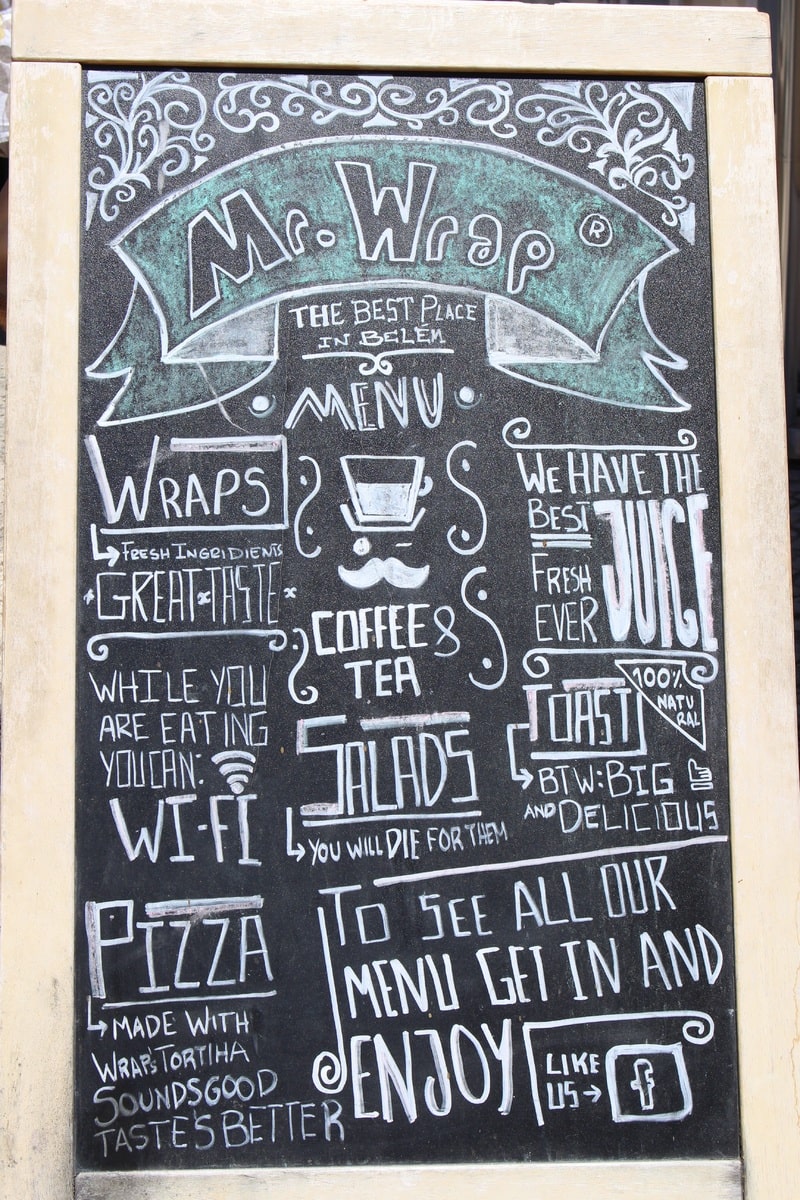 Mr. Wrap ®
THE BEST PLACE
IN BELÉM
MENU
WRAPS
FRESH INGRIDIENTS
GREAT TASTE
WHILE YOU
ARE EATING
YOU CAN:
WI-FI
COFFEE &
TEA
WE HAVE THE
BEST
JUICE
FRESH
EVER
100%
NATU
RAL
TOAST
BTW: BIG
AND DELICIOUS
SALADS
YOU WILL DIE FOR THEM
PIZZA
MADE WITH
WRAP'S TORTIHA
SOUNDS GOOD
TASTE'S BETTER
TO SEE ALL OUR
MENU GET IN AND
ENJOY
LIKE
US
f